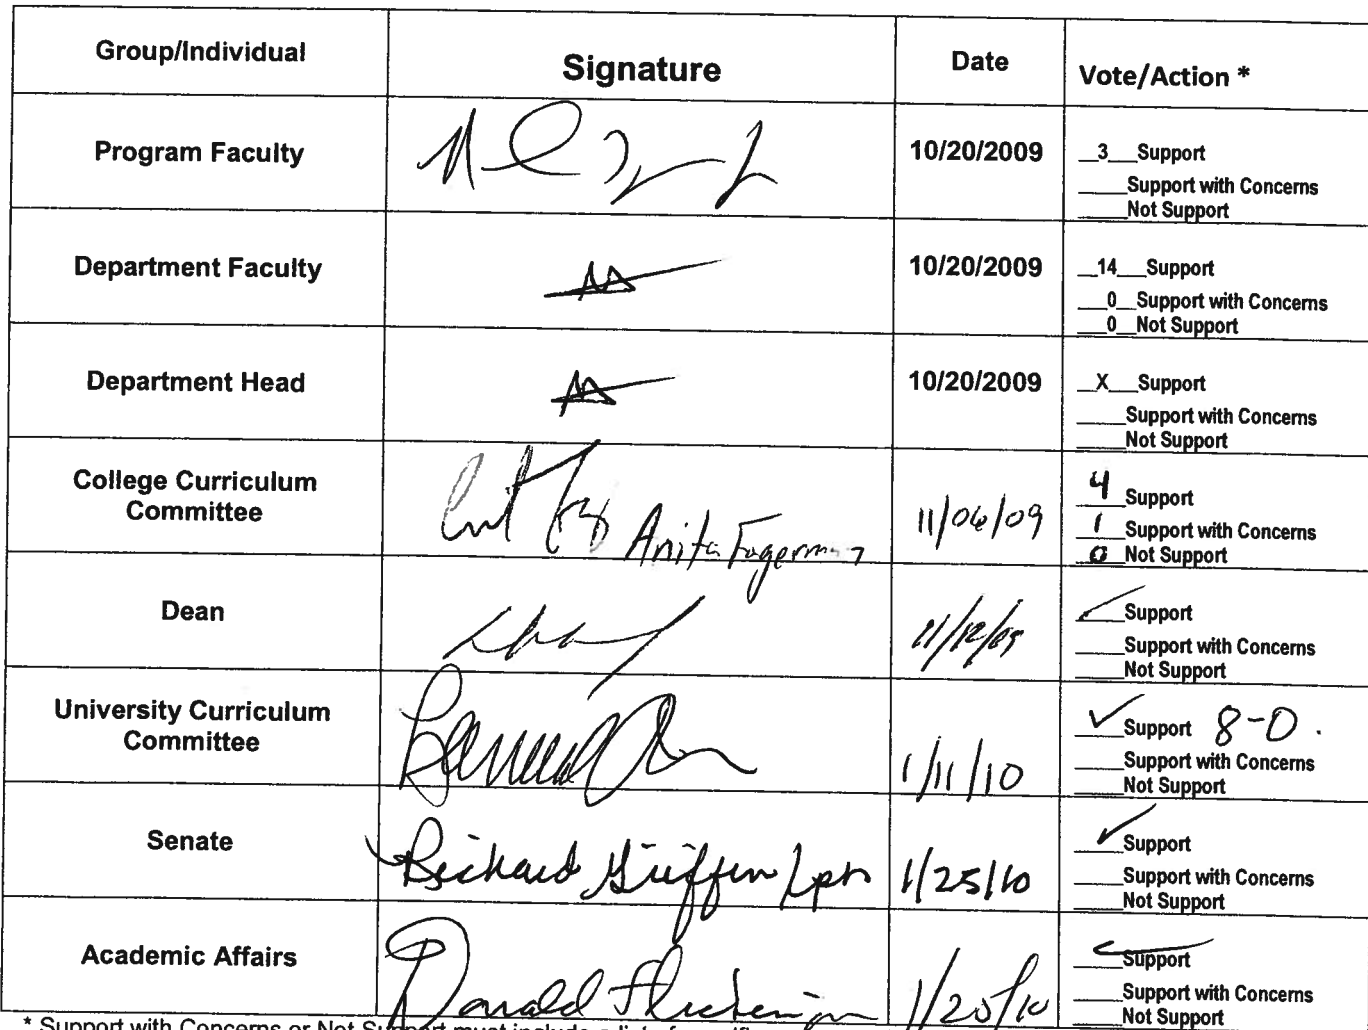 Group/Individual Signature Date Vote/Action *
Program Faculty 10/20/2009 __3__Support
____Support with Concerns
____Not Support
Department Faculty 10/20/2009 __14__Support
__0__Support with Concerns
__0__Not Support
Department Head 10/20/2009 __X__Support
____Support with Concerns
____Not Support
College Curriculum
Committee
Anita Fagerman 11/06/09 4 Support
1 Support with Concerns
0 Not Support
Dean 11/12/09 ____Support
____Support with Concerns
____Not Support
University Curriculum
Committee
1/11/10 ✓ Support 8-0.
____Support with Concerns
____Not Support
Senate Richard Griffin 1/25/10 ✓ Support
____Support with Concerns
____Not Support
Academic Affairs Donald ____Support
____Support with Concerns
____Not Support
* Support with Concerns or Not Support must include a list of